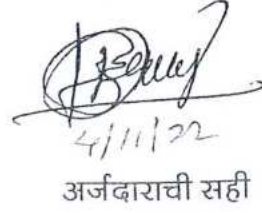 4/11/22
अर्जदाराची सही